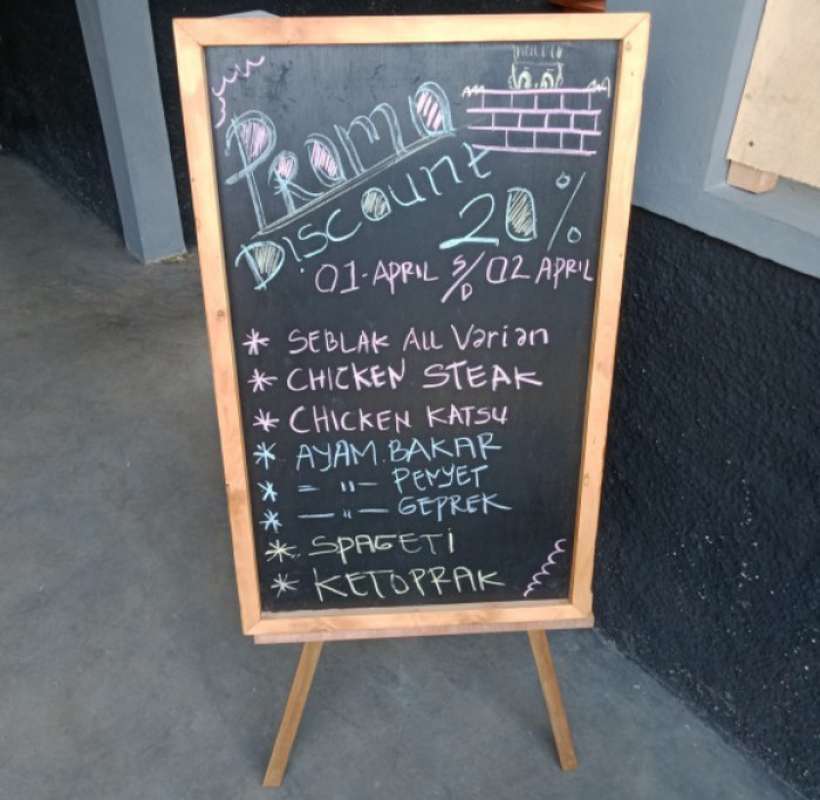 Promo
Discount 20%
01-APRIL S/D 02 APRIL
* SEBLAK ALL Varian
* CHICKEN STEAK
* CHICKEN KATSU
* AYAM.BAKAR
* — " — PENYET
* — " — GEPREK
* SPAGETI
* KETOPRAK